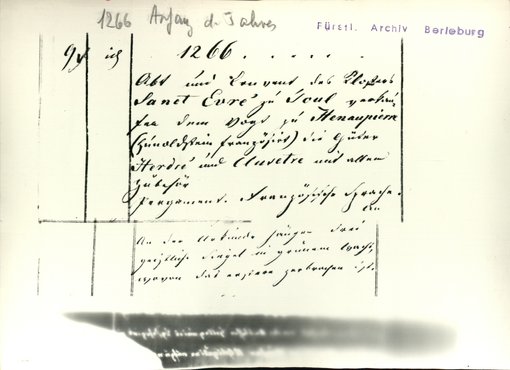 1266 Anfang d. Jahres
Fürstl. Archiv Berleburg
1266 . . . . .
Abt und Convent des Klosters
Sanct Evre zu Toul verkau-
fen dem Vogt zu Henaupierre
(Hunoldstein französirt) die Güter
Herdré und Auvetre mit allem
Zubehör
Pergament. Französische Sprache.
An der Urkunde hängen drei
geistliche Siegel in grünem Wachs,
wovon das erstere zerbrochen ist.